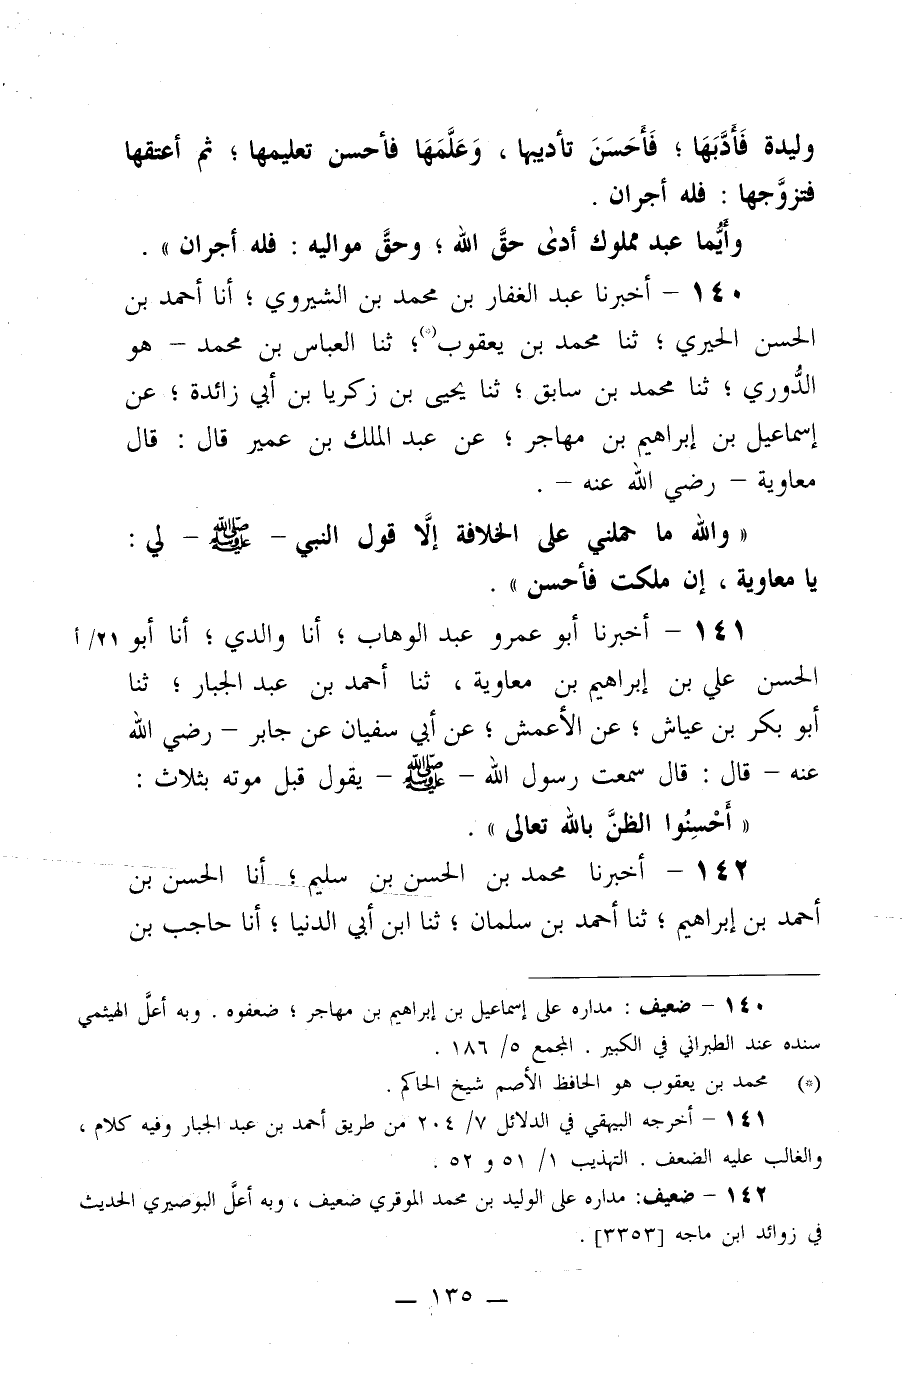 وليدة فَأَدَّبَهَا ؛ فَأَحَسَنَ تأديبها ، وَعَلَّمَهَا فأحسن تعليمها ؛ ثم أعتقها
فتزوَّجها : فله أجران .
وأَيُّما عبد مملوك أدى حقَّ الله ؛ وحقَّ مواليه : فله أجران » .
١٤٠ – أخبرنا عبد الغفار بن محمد بن الشيروي ؛ أنا أحمد بن
الحسن الحيري ؛ ثنا محمد بن يعقوب(*)؛ ثنا العباس بن محمد – هو
الدُّوري ؛ ثنا محمد بن سابق ؛ ثنا يحيى بن زكريا بن أبي زائدة ؛ عن
إسماعيل بن إبراهيم بن مهاجر ؛ عن عبد الملك بن عمير قال : قال
معاوية – رضي الله عنه – .
« والله ما حملني على الخلافة إلَّا قول النبي – ﷺ – لي :
يا معاوية ، إن ملكت فأحسن » .
١٤١ – أخبرنا أبو عمرو عبد الوهاب ؛ أنا والدي ؛ أنا أبو ٢١/ أ
الحسن علي بن إبراهيم بن معاوية ، ثنا أحمد بن عبد الجبار ؛ ثنا
أبو بكر بن عياش ؛ عن الأعمش ؛ عن أبي سفيان عن جابر – رضي الله
عنه – قال : قال سمعت رسول الله – ﷺ – يقول قبل موته بثلاث :
« أَحْسِنُوا الظنَّ بالله تعالى » .
١٤٢ – أخبرنا محمد بن الحسن بن سليم ؛ أنا الحسن بن
أحمد بن إبراهيم ؛ ثنا أحمد بن سلمان ؛ ثنا ابن أبي الدنيا ؛ أنا حاجب بن
١٤٠ – ضعيف : مداره على إسماعيل بن إبراهيم بن مهاجر ؛ ضعفوه . وبه أعلَّ الهيثمي
سنده عند الطبراني في الكبير . المجمع ٥/ ١٨٦ .
(*) محمد بن يعقوب هو الحافظ الأصم شيخ الحاكم .
١٤١ – أخرجه البيهقي في الدلائل ٧/ ٢٠٤ من طريق أحمد بن عبد الجبار وفيه كلام ،
والغالب عليه الضعف . التهذيب ١/ ٥١ و ٥٢ .
١٤٢ – ضعيف: مداره على الوليد بن محمد الموقري ضعيف ، وبه أعلَّ البوصيري الحديث
في زوائد ابن ماجه [٣٣٥٣] .
– ١٣٥ –